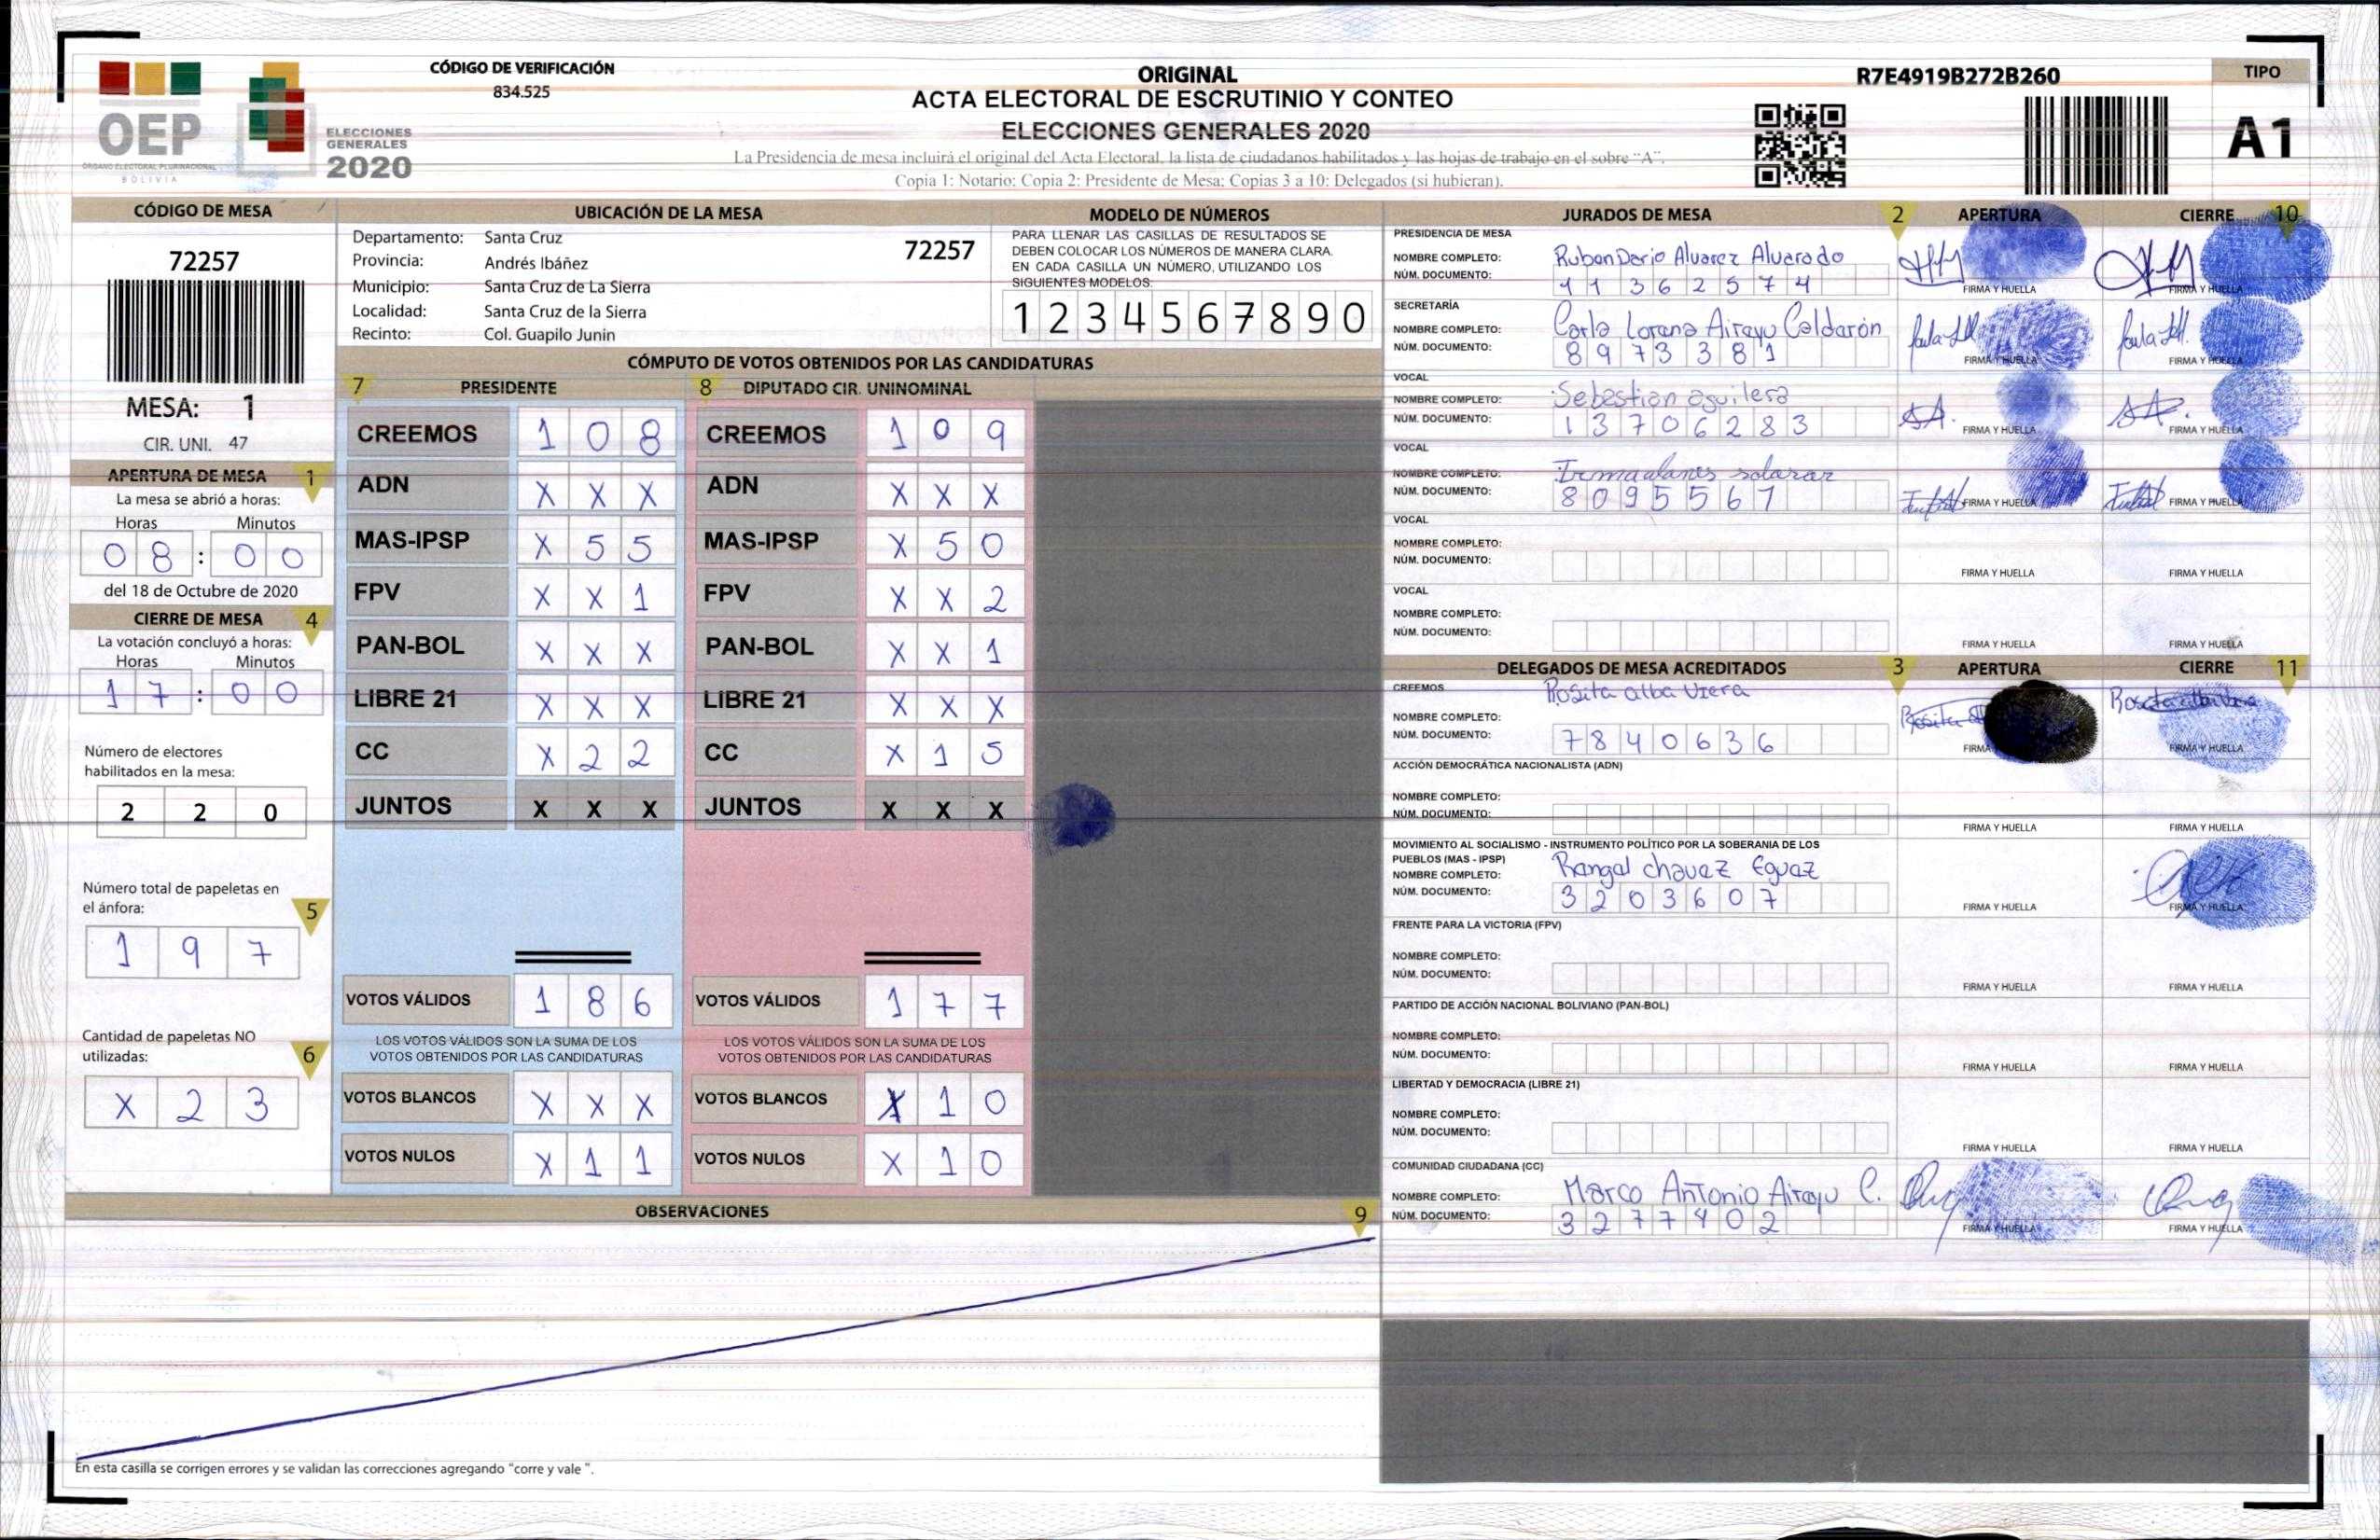 CÓDIGO DE VERIFICACIÓN
834.525
OEP
ÓRGANO ELECTORAL PLURINACIONAL
BOLIVIA
ELECCIONES
GENERALES
2020
ORIGINAL
ACTA ELECTORAL DE ESCRUTINIO Y CONTEO
ELECCIONES GENERALES 2020
La Presidencia de mesa incluirá el original del Acta Electoral, la lista de ciudadanos habilitados y las hojas de trabajo en el sobre "A".
Copia 1: Notario; Copia 2: Presidente de Mesa; Copias 3 a 10: Delegados (si hubieran).
R7E4919B272B260
TIPO
A1
CÓDIGO DE MESA
72257
MESA: 1
CIR. UNI. 47
APERTURA DE MESA 1
La mesa se abrió a horas:
Horas Minutos
0 8 : 0 0
del 18 de Octubre de 2020
CIERRE DE MESA 4
La votación concluyó a horas:
Horas Minutos
1 7 : 0 0
Número de electores
habilitados en la mesa:
2 2 0
Número total de papeletas en
el ánfora: 5
1 9 7
Cantidad de papeletas NO
utilizadas: 6
X 2 3
UBICACIÓN DE LA MESA
Departamento: Santa Cruz
Provincia: Andrés Ibáñez
Municipio: Santa Cruz de La Sierra
Localidad: Santa Cruz de la Sierra
Recinto: Col. Guapilo Junin
72257
MODELO DE NÚMEROS
PARA LLENAR LAS CASILLAS DE RESULTADOS SE
DEBEN COLOCAR LOS NÚMEROS DE MANERA CLARA.
EN CADA CASILLA UN NÚMERO, UTILIZANDO LOS
SIGUIENTES MODELOS:
1 2 3 4 5 6 7 8 9 0
CÓMPUTO DE VOTOS OBTENIDOS POR LAS CANDIDATURAS
7 PRESIDENTE 8 DIPUTADO CIR. UNINOMINAL
CREEMOS 1 0 8 CREEMOS 1 0 9
ADN X X X ADN X X X
MAS-IPSP X 5 5 MAS-IPSP X 5 0
FPV X X 1 FPV X X 2
PAN-BOL X X X PAN-BOL X X 1
LIBRE 21 X X X LIBRE 21 X X X
CC X 2 2 CC X 1 5
JUNTOS X X X JUNTOS X X X
VOTOS VÁLIDOS 1 8 6 VOTOS VÁLIDOS 1 7 7
LOS VOTOS VÁLIDOS SON LA SUMA DE LOS LOS VOTOS VÁLIDOS SON LA SUMA DE LOS
VOTOS OBTENIDOS POR LAS CANDIDATURAS VOTOS OBTENIDOS POR LAS CANDIDATURAS
VOTOS BLANCOS X X X VOTOS BLANCOS X 1 0
VOTOS NULOS X 1 1 VOTOS NULOS X 1 0
OBSERVACIONES 9
En esta casilla se corrigen errores y se validan las correcciones agregando "corre y vale ".
JURADOS DE MESA 2 APERTURA CIERRE 10
PRESIDENCIA DE MESA
NOMBRE COMPLETO: Ruben Dario Alvarez Alvarado
NÚM. DOCUMENTO: 1 1 3 6 2 5 7 4 FIRMA Y HUELLA FIRMA Y HUELLA
SECRETARÍA
NOMBRE COMPLETO: Carla Lorena Airayu Calderón
NÚM. DOCUMENTO: 8 9 7 3 3 8 1 FIRMA Y HUELLA FIRMA Y HUELLA
VOCAL
NOMBRE COMPLETO: Sebastian aguilera
NÚM. DOCUMENTO: 1 3 7 0 6 2 8 3 FIRMA Y HUELLA FIRMA Y HUELLA
VOCAL
NOMBRE COMPLETO: solarar
NÚM. DOCUMENTO: 8 0 9 5 5 6 1 FIRMA Y HUELLA FIRMA Y HUELLA
VOCAL
NOMBRE COMPLETO:
NÚM. DOCUMENTO: FIRMA Y HUELLA FIRMA Y HUELLA
VOCAL
NOMBRE COMPLETO:
NÚM. DOCUMENTO: FIRMA Y HUELLA FIRMA Y HUELLA
DELEGADOS DE MESA ACREDITADOS 3 APERTURA CIERRE 11
CREEMOS Rosita alba Viera
NOMBRE COMPLETO:
NÚM. DOCUMENTO: 7 8 4 0 6 3 6 FIRMA FIRMA Y HUELLA
ACCIÓN DEMOCRÁTICA NACIONALISTA (ADN)
NOMBRE COMPLETO:
NÚM. DOCUMENTO: FIRMA Y HUELLA FIRMA Y HUELLA
MOVIMIENTO AL SOCIALISMO - INSTRUMENTO POLÍTICO POR LA SOBERANIA DE LOS
PUEBLOS (MAS - IPSP)
NOMBRE COMPLETO: Rangal chavez Eguaz
NÚM. DOCUMENTO: 3 2 0 3 6 0 7 FIRMA Y HUELLA FIRMA Y HUELLA
FRENTE PARA LA VICTORIA (FPV)
NOMBRE COMPLETO:
NÚM. DOCUMENTO: FIRMA Y HUELLA FIRMA Y HUELLA
PARTIDO DE ACCIÓN NACIONAL BOLIVIANO (PAN-BOL)
NOMBRE COMPLETO:
NÚM. DOCUMENTO: FIRMA Y HUELLA FIRMA Y HUELLA
LIBERTAD Y DEMOCRACIA (LIBRE 21)
NOMBRE COMPLETO:
NÚM. DOCUMENTO: FIRMA Y HUELLA FIRMA Y HUELLA
COMUNIDAD CIUDADANA (CC)
NOMBRE COMPLETO: Marco Antonio Airayu C.
NÚM. DOCUMENTO: 3 2 7 7 4 0 2 FIRMA Y HUELLA FIRMA Y HUELLA